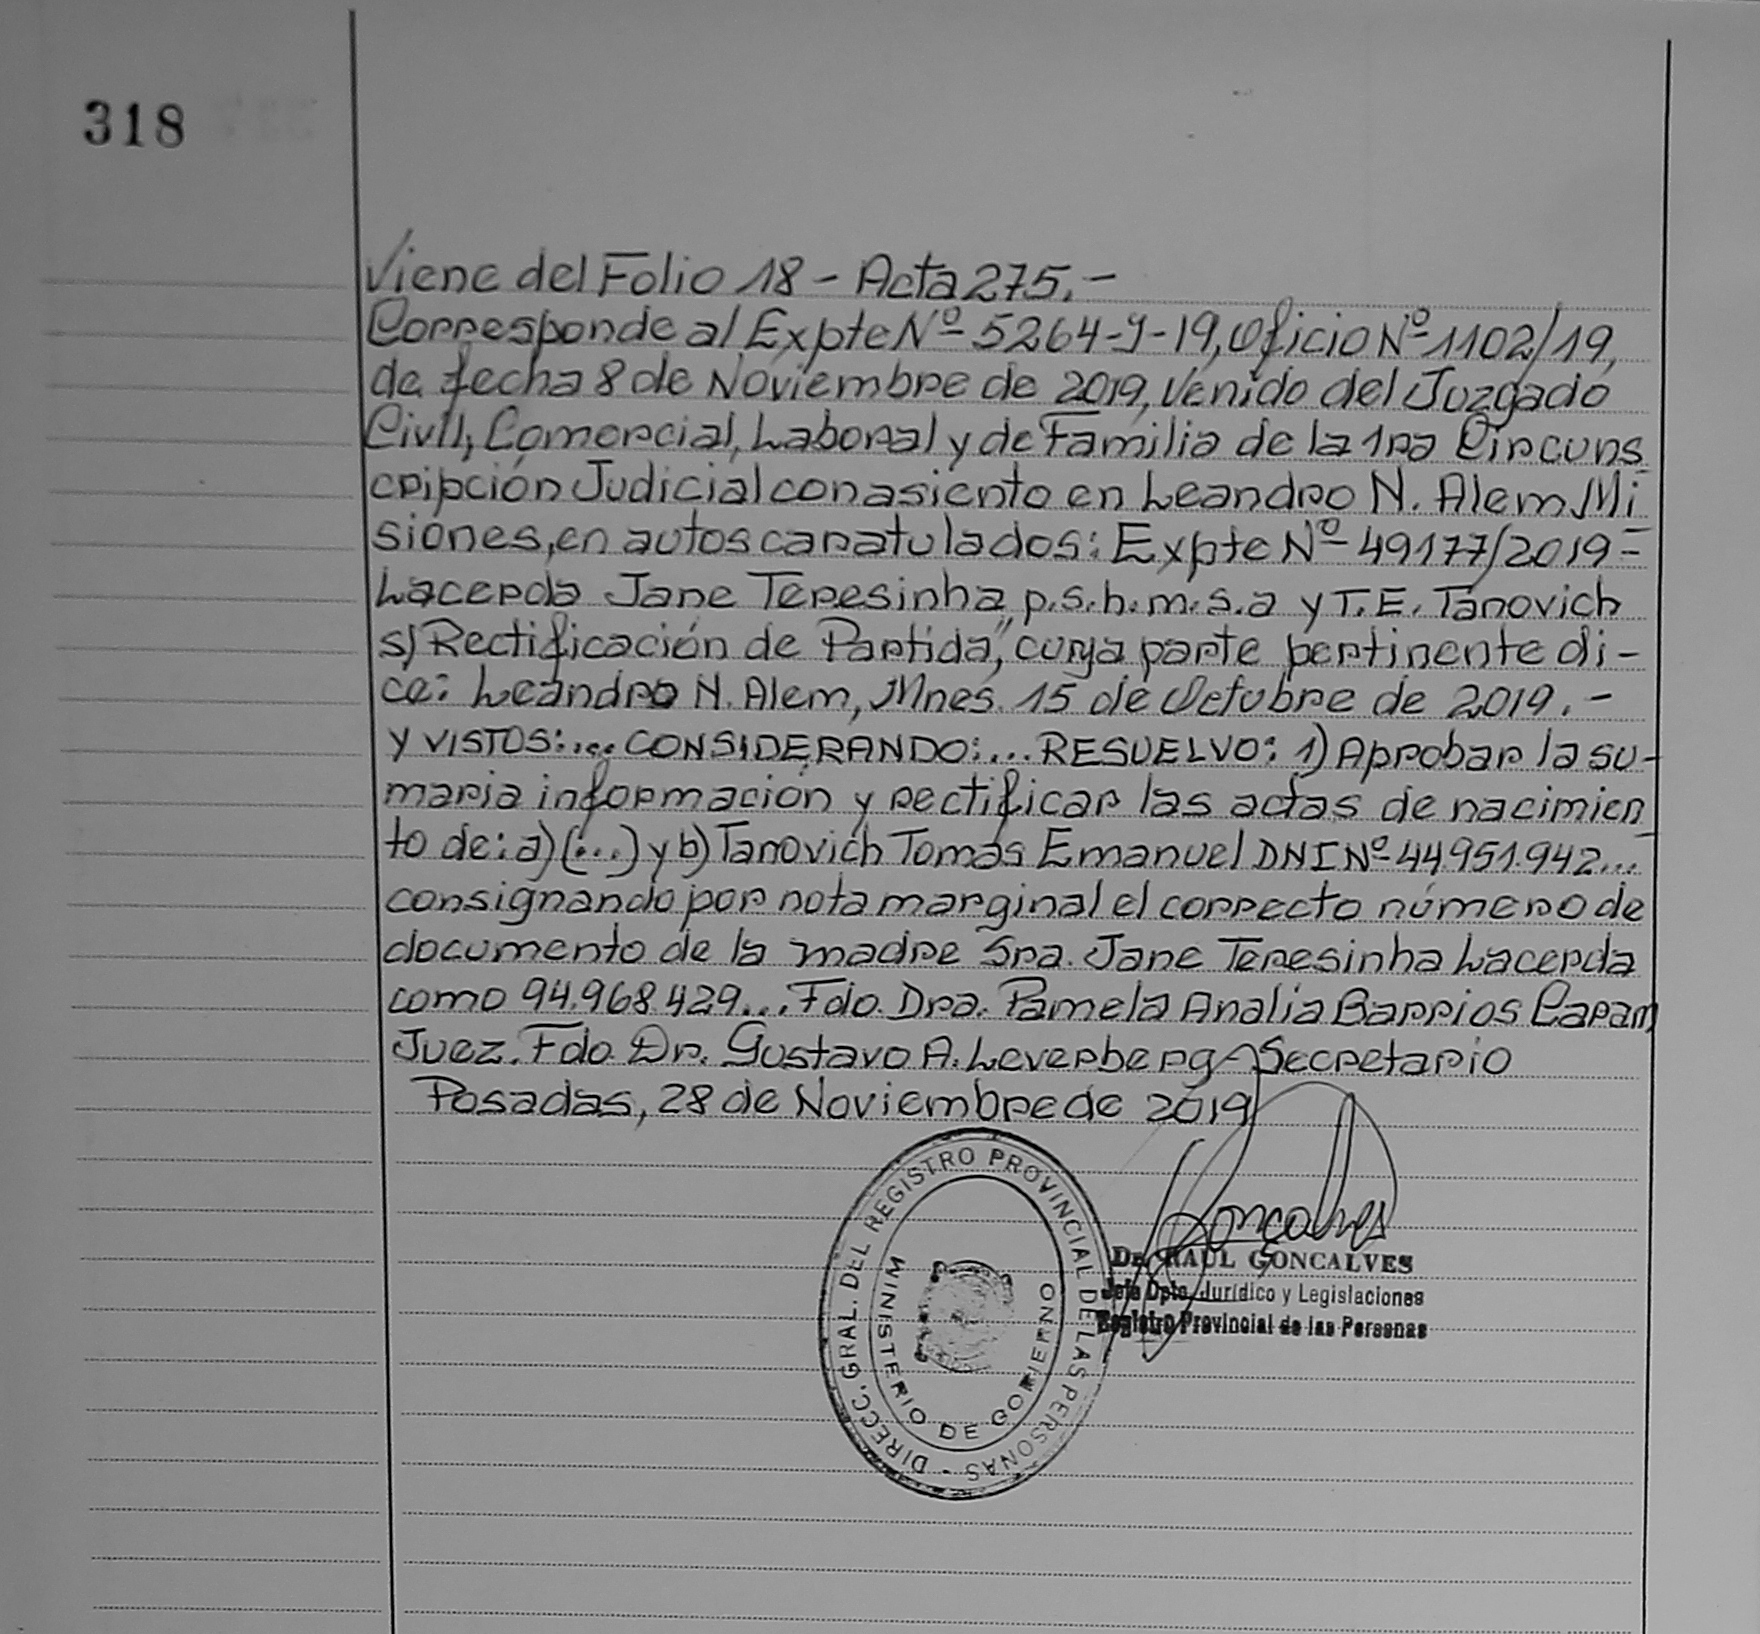 318
Viene del Folio 18 - Acta 275.-
Corresponde al Expte Nº 5264-J-19, Oficio Nº 1102/19,
de fecha 8 de Noviembre de 2019, Venido del Juzgado
Civil, Comercial, Laboral y de Familia de la 1ra Circuns
cripción Judicial con asiento en Leandro N. Alem, Mi
siones, en autos caratulados: Expte Nº 49177/2019-
Lacerda Jane Teresinha p.s.h.m.s.a y T.E. Tanovich
s/ Rectificación de Partida", cuya parte pertinente di-
ce: Leandro N. Alem, Mnes. 15 de Octubre de 2019.-
Y VISTOS:... CONSIDERANDO:... RESUELVO: 1) Aprobar la su-
maria información y rectificar las actas de nacimien
to de: a) (...) y b) Tanovich Tomás Emanuel DNI Nº 44.951.942...
consignando por nota marginal el correcto número de
documento de la madre Sra. Jane Teresinha Lacerda
como 94.968.429... Fdo. Dra. Pamela Analia Barrios Caram
Juez. Fdo. Dr. Gustavo A. Leverberg - Secretario
Posadas, 28 de Noviembre de 2019
Goncalves
DR. RAUL GONCALVES
Jefe Dpto. Jurídico y Legislaciones
Registro Provincial de las Personas
DIRECC. GRAL. DEL REGISTRO PROVINCIAL DE LAS PERSONAS -
MINISTERIO DE GOBIERNO